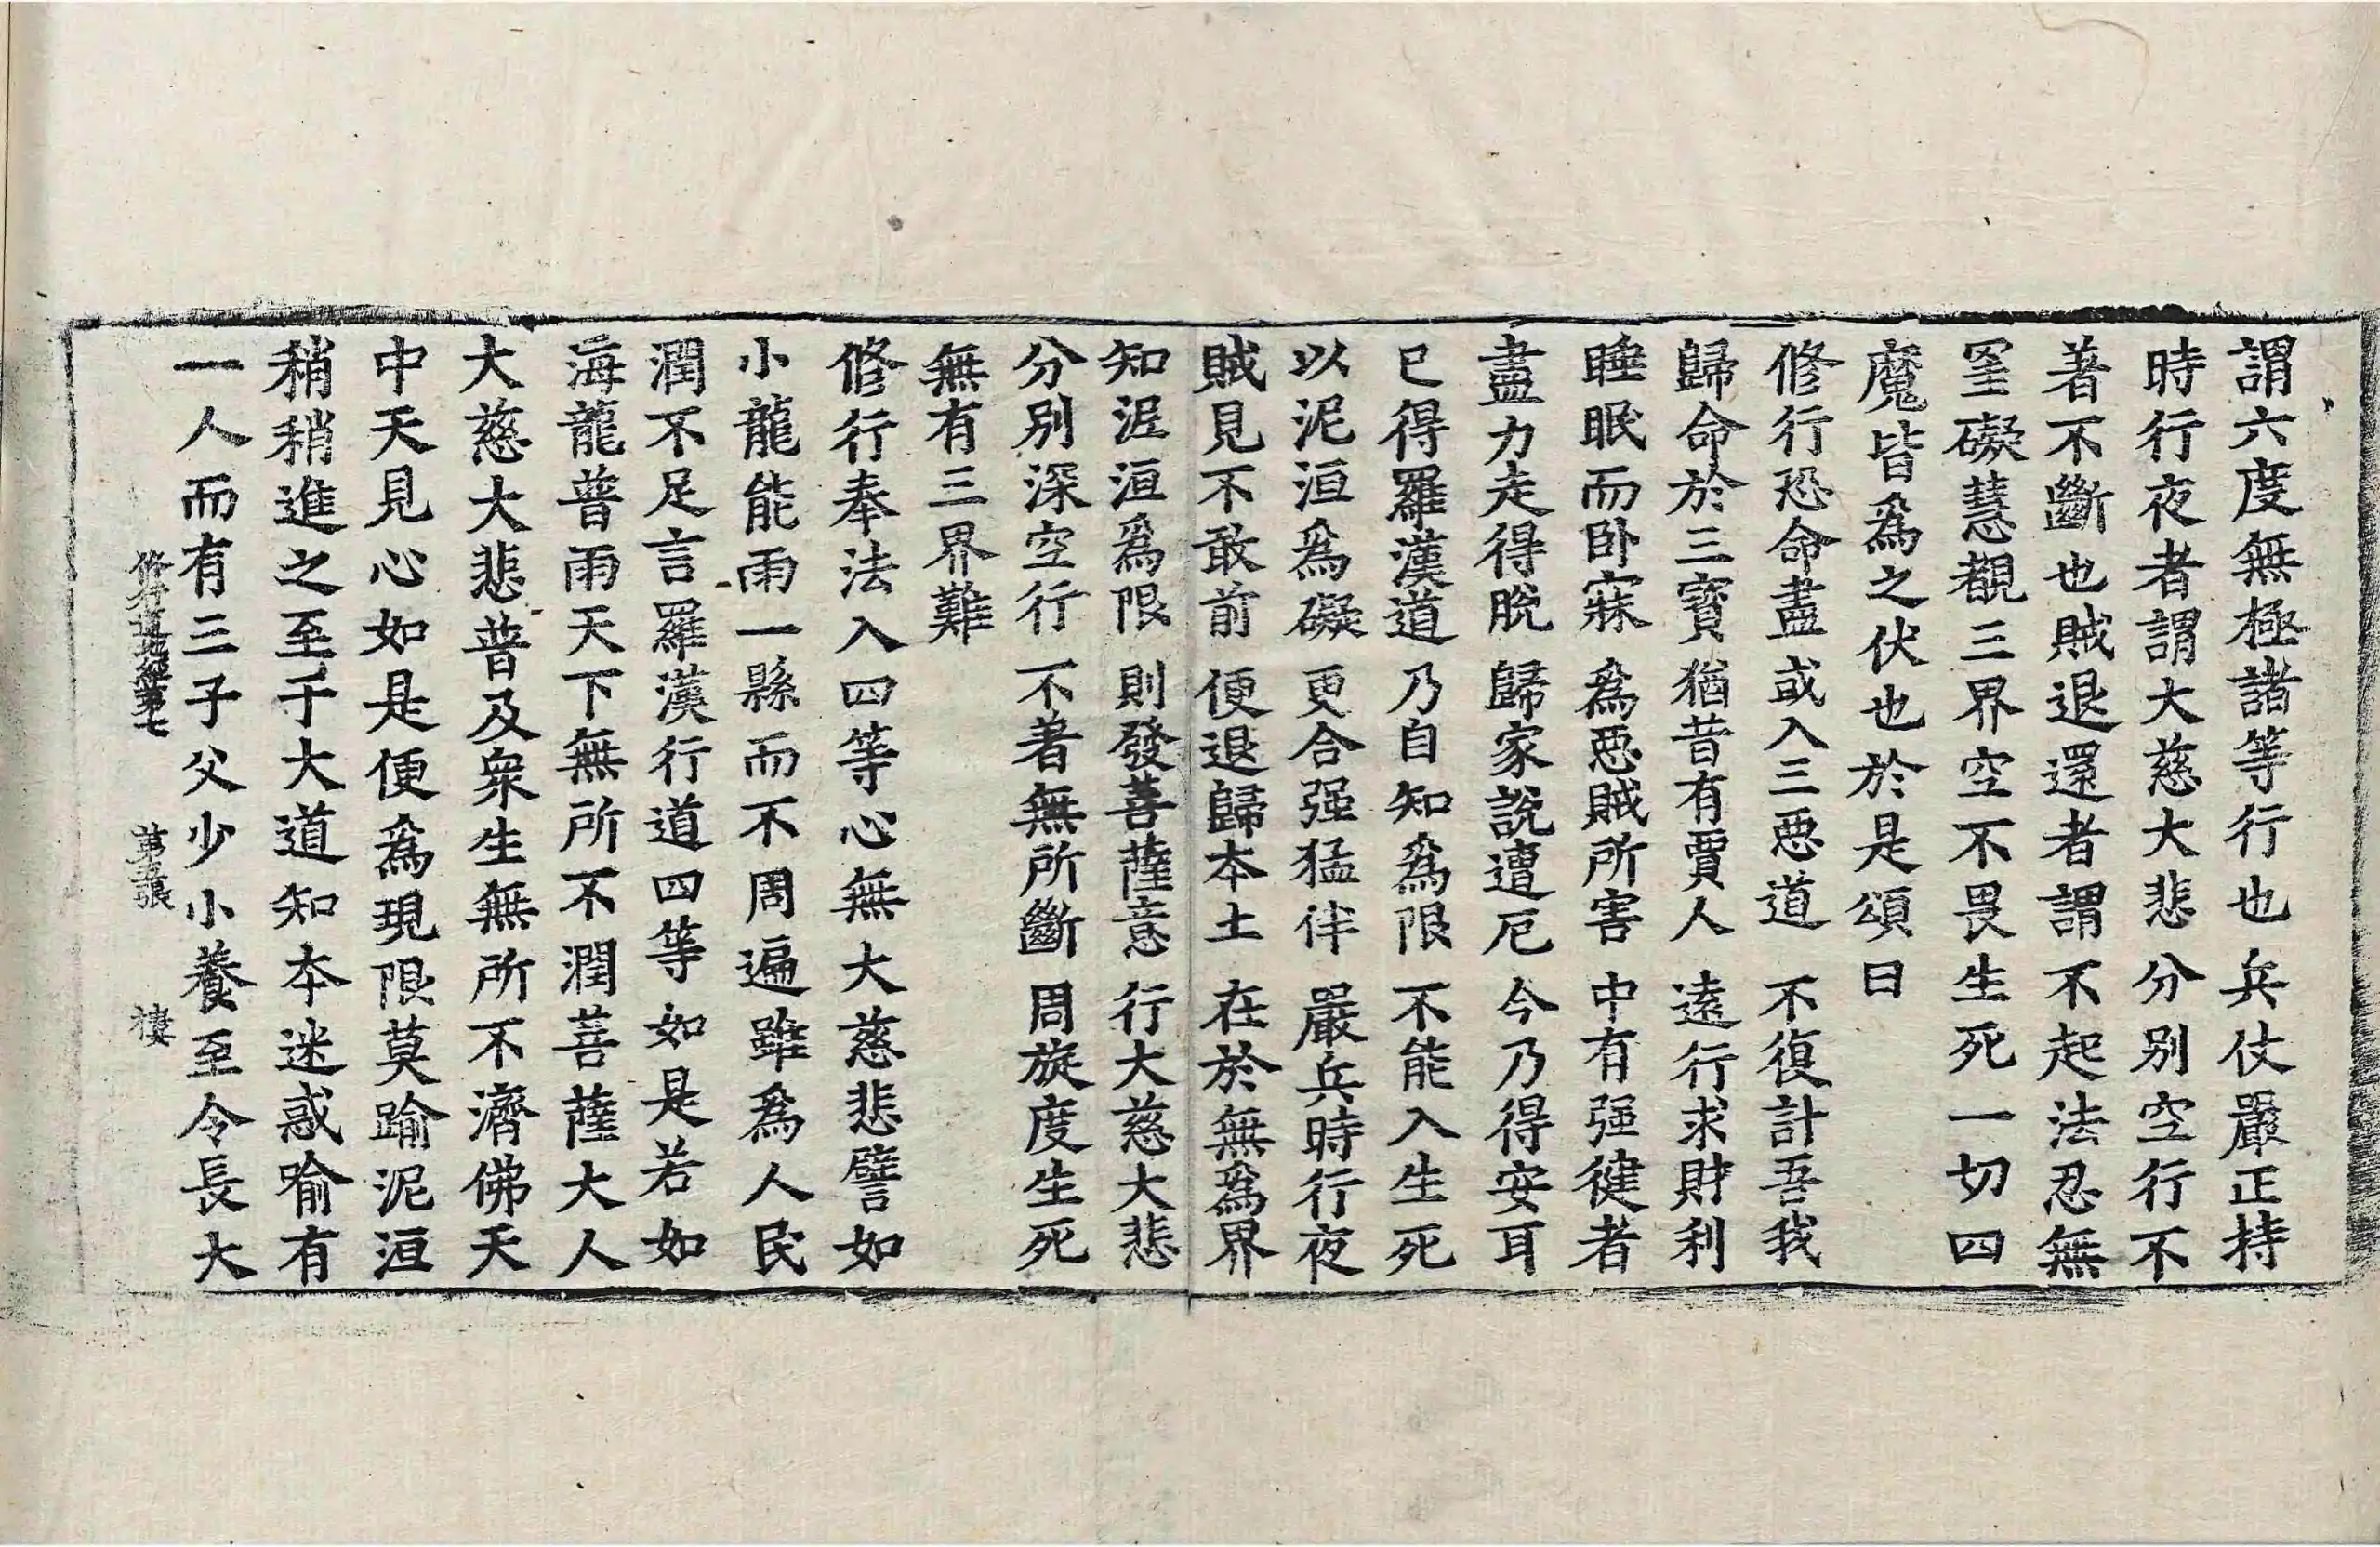 謂六度無極諸等行也兵仗嚴正持
時行夜者謂大慈大悲分别空行不
著不斷也賊退還者謂不起法忍無
罣礙慧覩三界空不畏生死一切四
魔皆爲之伏也於是頌曰
修行恐命盡 或入三惡道 不復計吾我
歸命於三寶 猶昔有賈人 遠行求財利
睡眠而卧寐 爲惡賊所害 中有强健者
盡力走得脫 歸家說遭厄 今乃得安耳
已得羅漢道 乃自知爲限 不能入生死
以泥洹爲礙 更合强猛伴 嚴兵時行夜
賊見不敢前 便退歸本土 在於無爲界
知泥洹爲限 則發菩薩意 行大慈大悲
分别深空行 不著無所斷 周旋度生死
無有三界難
修行奉法入四等心無大慈悲譬如
小龍能雨一縣而不周遍雖爲人民
潤不足言羅漢行道四等如是若如
海龍普雨天下無所不潤菩薩大人
大慈大悲普及衆生無所不濟佛天
中天見心如是便爲現限莫踰泥洹
稍稍進之至于大道知本迷惑踰有
一人而有三子父少小養至令長大
修行道地經第七 第五張 樓